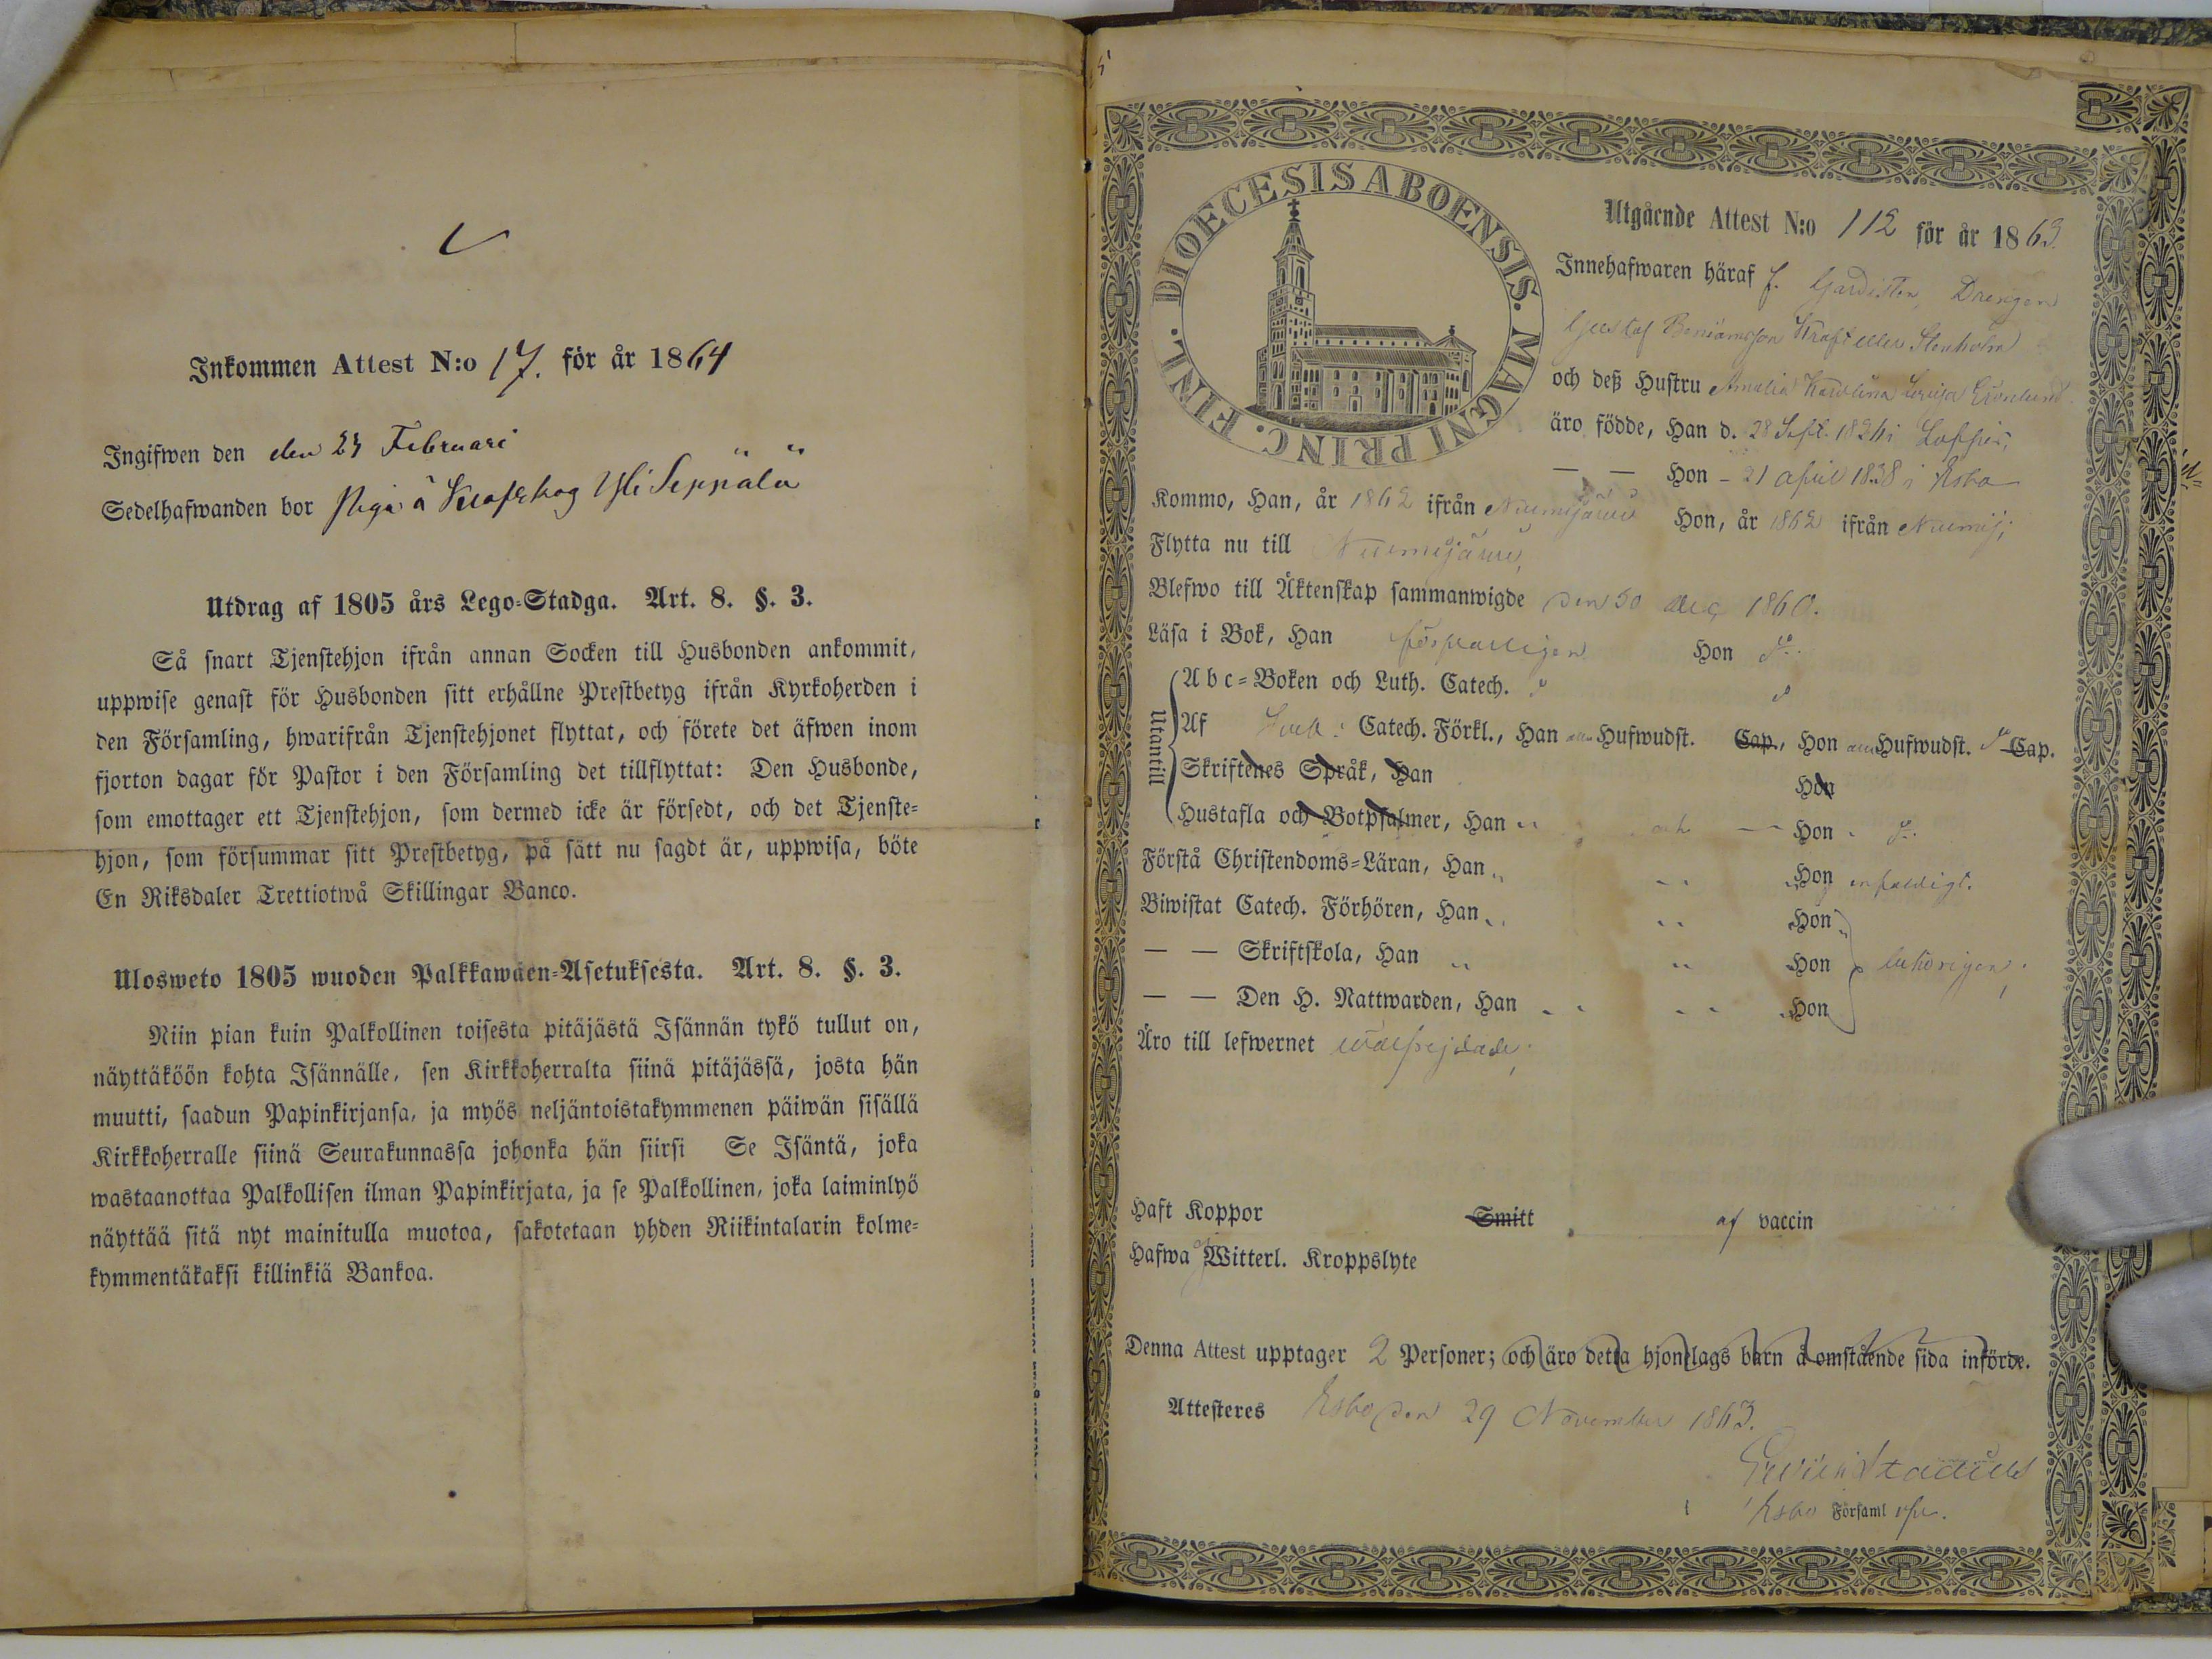 Inkommen Attest N:o 17. för år 1864
Ingifwen den den 23 Februari
Sedelhafwanden bor Piga å Yli Seppälä
Utdrag af 1805 års Lego-Stadga. Art. 8. §. 3.
Så snart Tjenstehjon ifrån annan Socken till Husbonden ankommit,
uppwise genast för Husbonden sitt erhållne Prestbetyg ifrån Kyrkoherden i
den Församling, hwarifrån Tjenstehjonet flyttat, och förete det äfwen inom
fjorton dagar för Pastor i den Församling det tillflyttat: Den Husbonde,
som emottager ett Tjenstehjon, som dermed icke är försedt, och det Tjenste-
hjon, som försummar sitt Prestbetyg, på sätt nu sagdt är, uppwisa, böte
En Riksdaler Trettiotwå Skillingar Banco.
Ulosweto 1805 wuoden Palkkawäen-Asetuksesta. Art. 8. §. 3.
Niin pian kuin Palkollinen toisesta pitäjästä Isännän tykö tullut on,
näyttäköön kohta Isännälle, sen Kirkkoherralta siinä pitäjässä, josta hän
muutti, saadun Papinkirjansa, ja myös neljäntoistakymmenen päiwän sisällä
Kirkkoherralle siinä Seurakunnassa johonka hän siirsi Se Isäntä, joka
wastaanottaa Palkollisen ilman Papinkirjata, ja se Palkollinen, joka laiminlyö
näyttää sitä nyt mainitulla muotoa, sakotetaan yhden Riikintalarin kolme-
kymmentäkaksi killinkiä Bankoa.
DIOECESIS ABOENSIS. MAGNI PRINC. FINL.
Utgående Attest N:o 112 för år 1863.
Innehafwaren häraf f. Gardisten, Drengen
Gustaf Beniamsson Kraft eller Stenholm
och deß Hustru Amalia Karolina Lovisa Grönlund
äro födde, Han d. 28 Sept. 1824 i Loppis,
— — Hon – 21 april 1838 i Esbo
Kommo, Han, år 1862 ifrån Nurmijärvi Hon, år 1862 ifrån Nurmij:
Flytta nu till Nurmijärvi,
Blefwo till Äktenskap sammanwigde den 30 dec 1860.
Läsa i Bok, Han försvarligen Hon do.
Utantill
Abc-Boken och Luth. Catech. do do
Af Sveb: Catech. Förkl., Han Hufwudst. Cap., Hon Hufwudst. do Cap.
Skriftenes Språk, Han Hon
Hustafla och Botpsalmer, Han Hon do.
Förstå Christendoms-Läran, Han Hon enfaldigt.
Biwistat Catech. Förhören, Han Hon
— — Skriftskola, Han Hon behörigen;
— — Den H. Nattwarden, Han Hon
Äro till lefwernet wälfrejdade;
Haft Koppor Smitt af vaccin
Hafwa ej Witterl. Kroppslyte
Denna Attest upptager 2 Personer; och äro detta hjonelags barn å omstående sida införde.
Attesteres Esbo den 29 November 1863.
Stadius
Esbo Församl